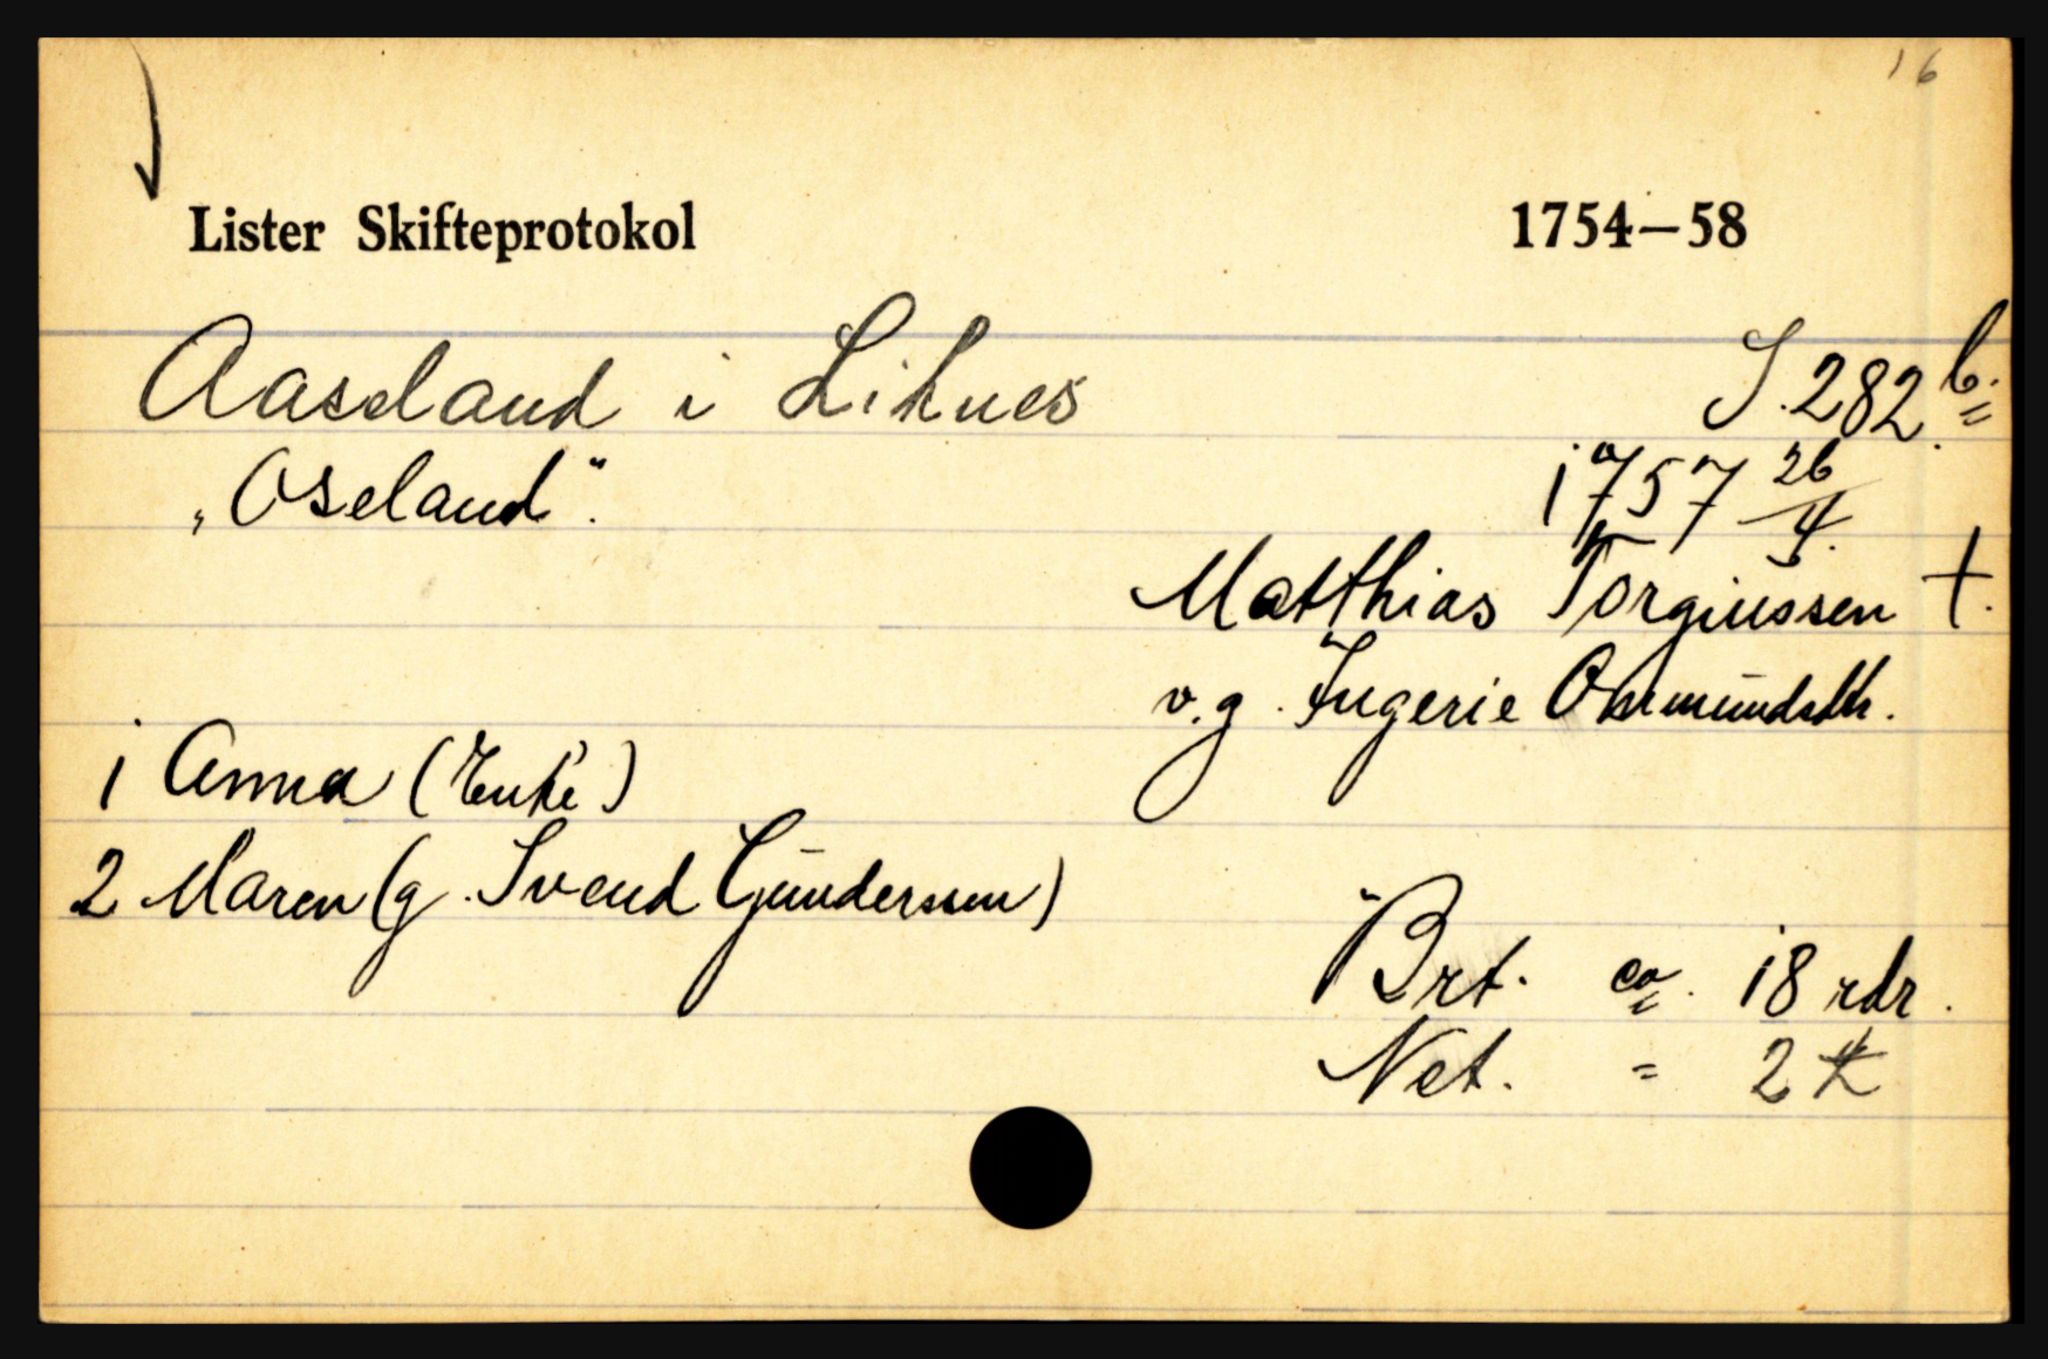 16
Lister Skifteprotokol 1754–58
Aaseland i Liknes S. 282 b.
„Oseland“. 1757 26/4.
Matthias Torgiussen †.
v. g. Ingerie Osmundsdtr.
1 Anna (Enke)
2 Maren (g. Svend Gunderssen)
Brt. ca. 18 rdr.
Net. = 2